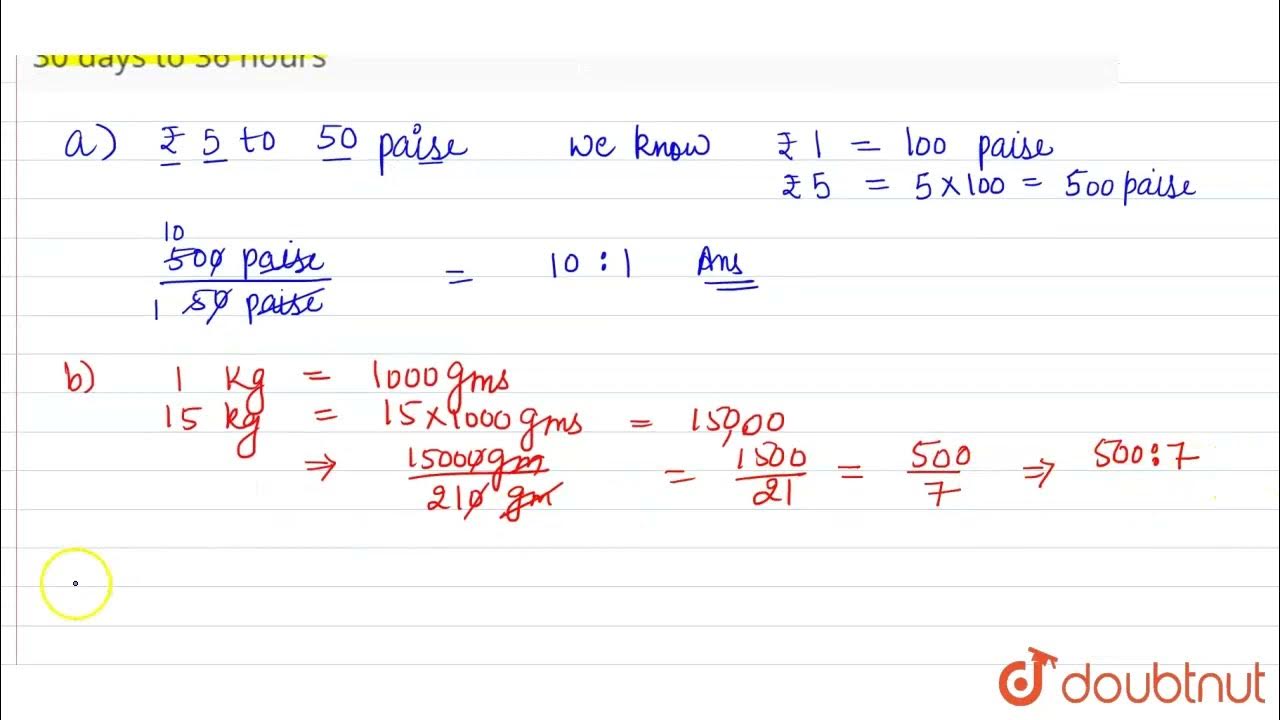 30 days to 36 hours
a) ₹ 5 to 50 paise we know ₹ 1 = 100 paise
₹ 5 = 5 × 100 = 500 paise
10
500 paise
= 10 : 1 Ans
1 50 paise
b) 1 kg = 1000 gms
15 kg = 15 × 1000 gms = 15,000
⇒ 15000 gm / 210 gm = 1500 / 21 = 500 / 7 ⇒ 500 : 7
doubtnut